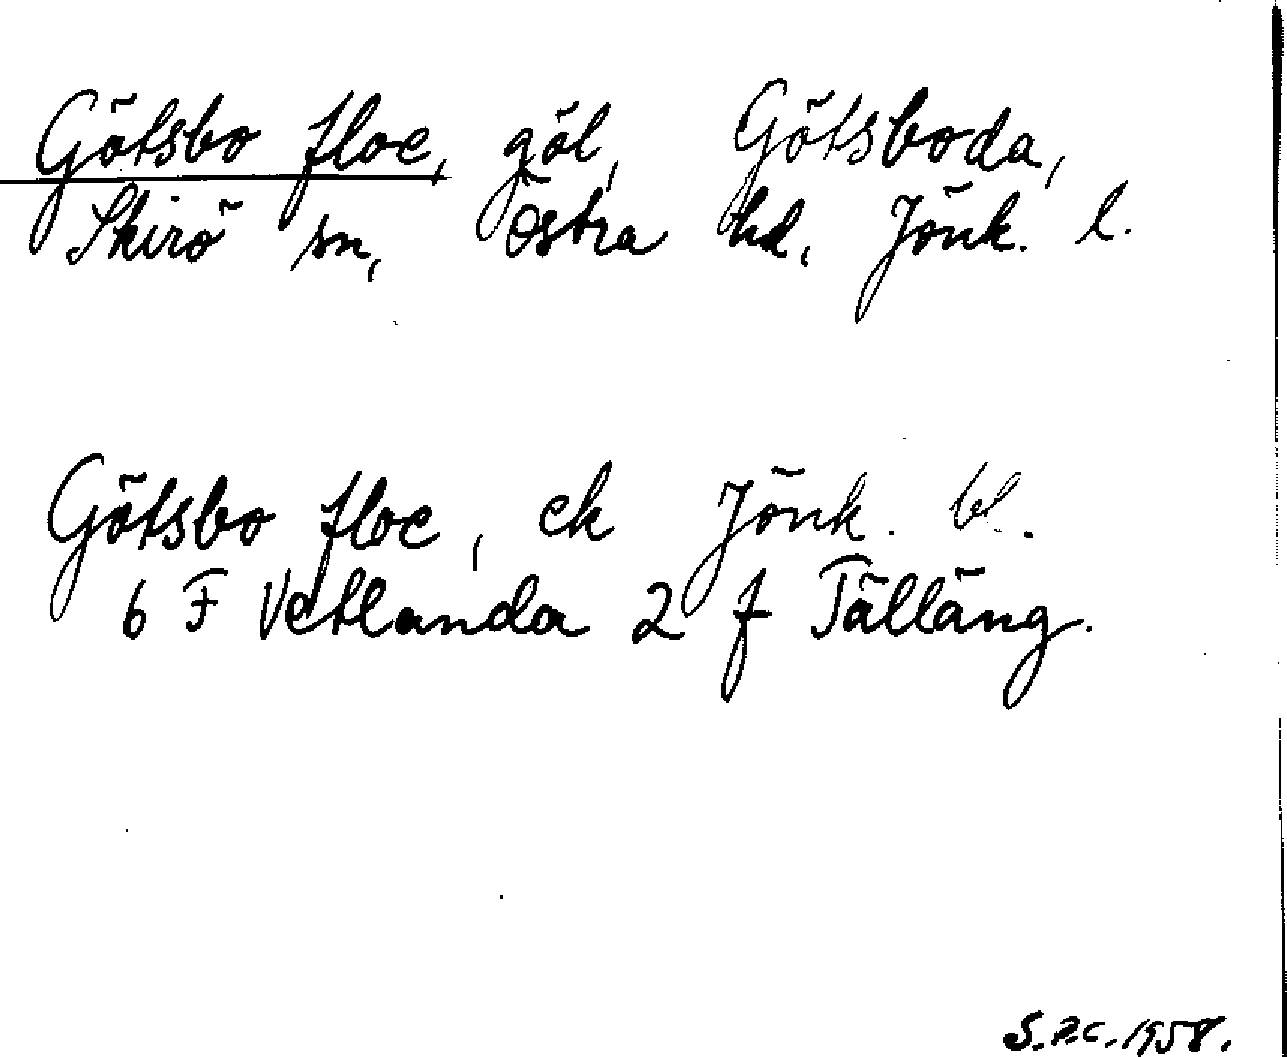 Götsbo floe, göl, Götsboda,
Skirö sn, Östra hd, Jönk. l.
Götsbo floe, ek Jönk. bl.
6 F Vetlanda 2 f Tälläng.
S.P.C. 1958.